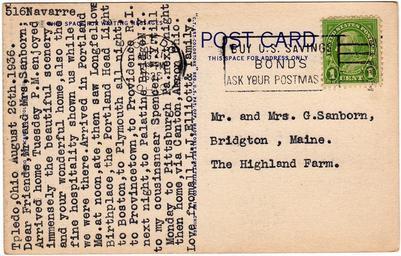 516Navarre
Tpledo,Ohio August 26th,1936.
Dear Friends,Mr.and Mrs.Sanborn;
Arrived home Tuesday P.M.enjoyed
immensely the beautiful scenery
and your wonderful home,also the
fine hospitality shown us while
we were there.Arrived in Portland
Me.at noon,ate,then saw Longfellow
Birthplace,the Portland Head Lit
to Boston,to Plymouth all night,
to Provincetown,to Providence R.I.
next night,to Palatine Bridge
to my cousins Spencer,
Monday to Pittsburgh night
then home,via Canton,Akron Ohio.
Love from
THIS SPACE FOR WRITING MESSAGES
POST CARD
THIS SPACE FOR ADDRESS ONLY
BUY U.S. SAVINGS
BONDS
ASK YOUR POSTMAS
UNITED STATES POSTAGE
1 CENT 1
Mr. and Mrs. G.Sanborn,
Bridgton , Maine.
The Highland Farm.